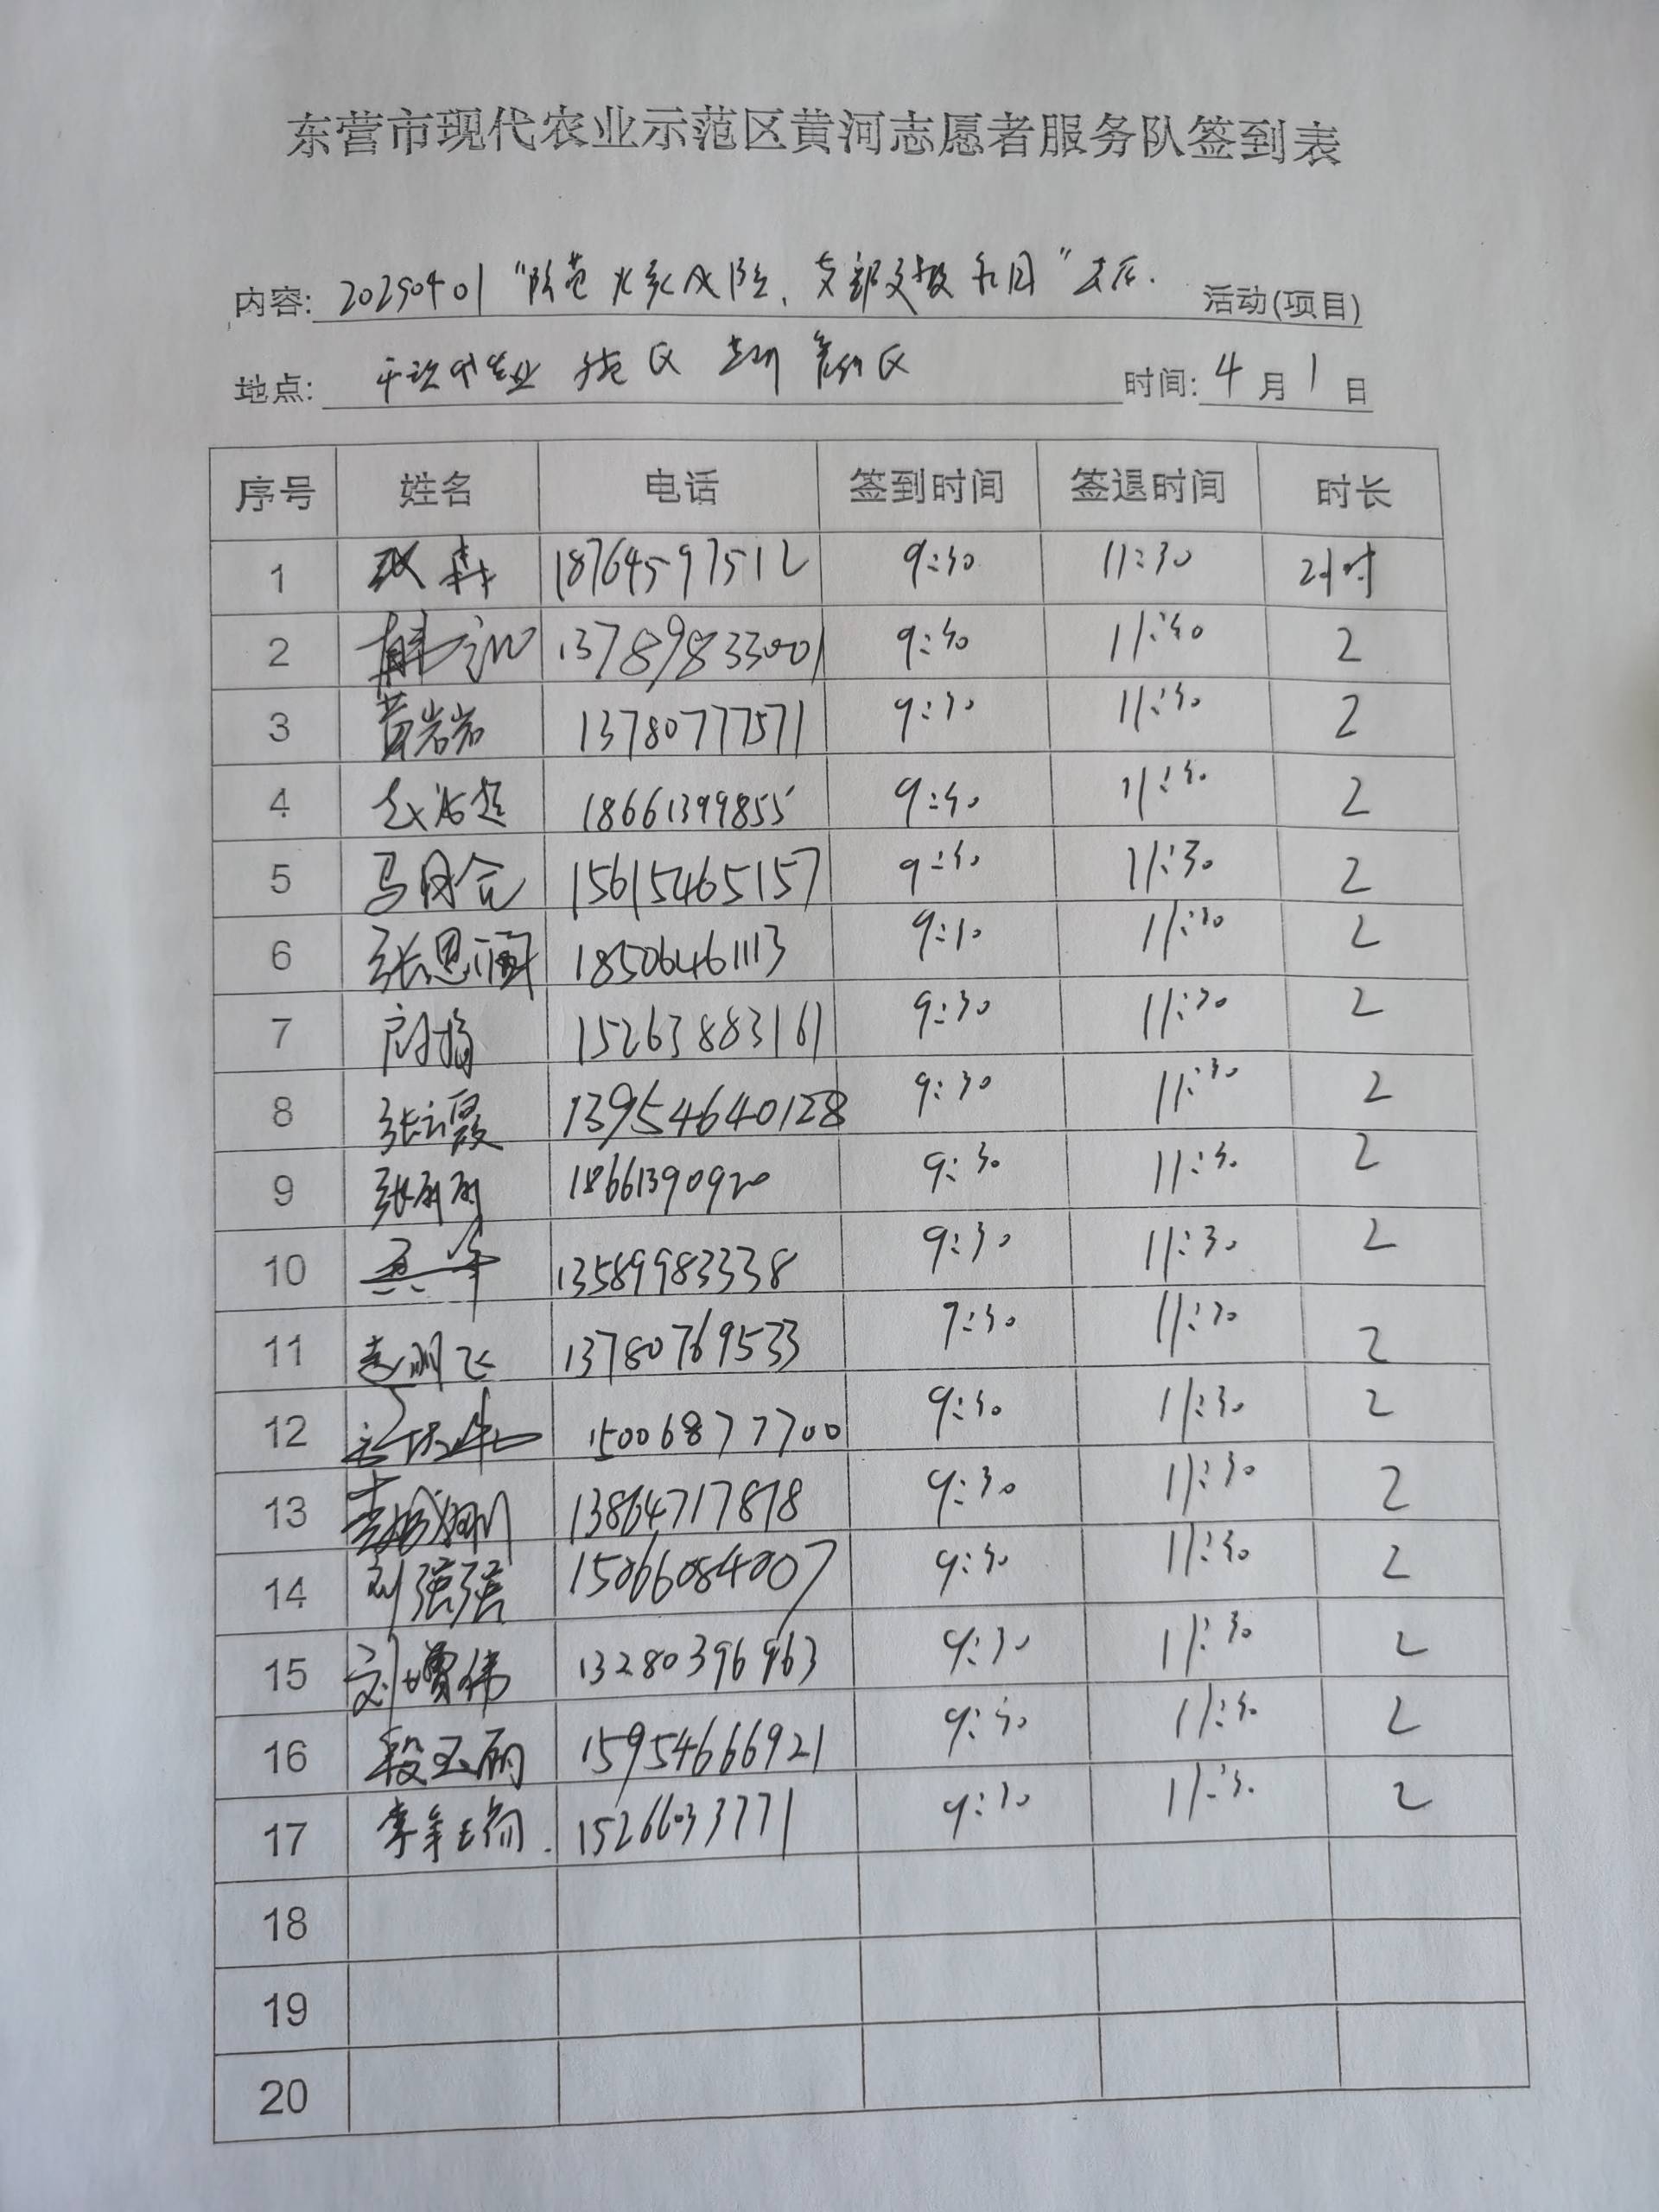 东营市现代农业示范区黄河志愿者服务队签到表
内容: 20250401 "防范 风险、支部" 活动(项目)
地点: 区 时间: 4 月 1 日
序号 姓名 电话 签到时间 签退时间 时长
1 18764597512 9:30 11:30 2小时
2 13789833001 9:30 11:30 2
3 黄岩岩 13780777571 9:30 11:30 2
4 18661399855 9:30 11:30 2
5 15615465157 9:30 11:30 2
6 张思 18506461113 9:30 11:30 2
7 15263883161 9:30 11:30 2
8 张云霞 13954640128 9:30 11:30 2
9 张丽丽 18661390920 9:30 11:30 2
10 13589983338 9:30 11:30 2
11 13780769533 9:30 11:30 2
12 15006877700 9:30 11:30 2
13 13864717878 9:30 11:30 2
14 刘强强 15066084007 9:30 11:30 2
15 刘增伟 13280396963 9:30 11:30 2
16 段玉丽 15954666921 9:30 11:30 2
17 李 15266033771 9:30 11:30 2
18
19
20